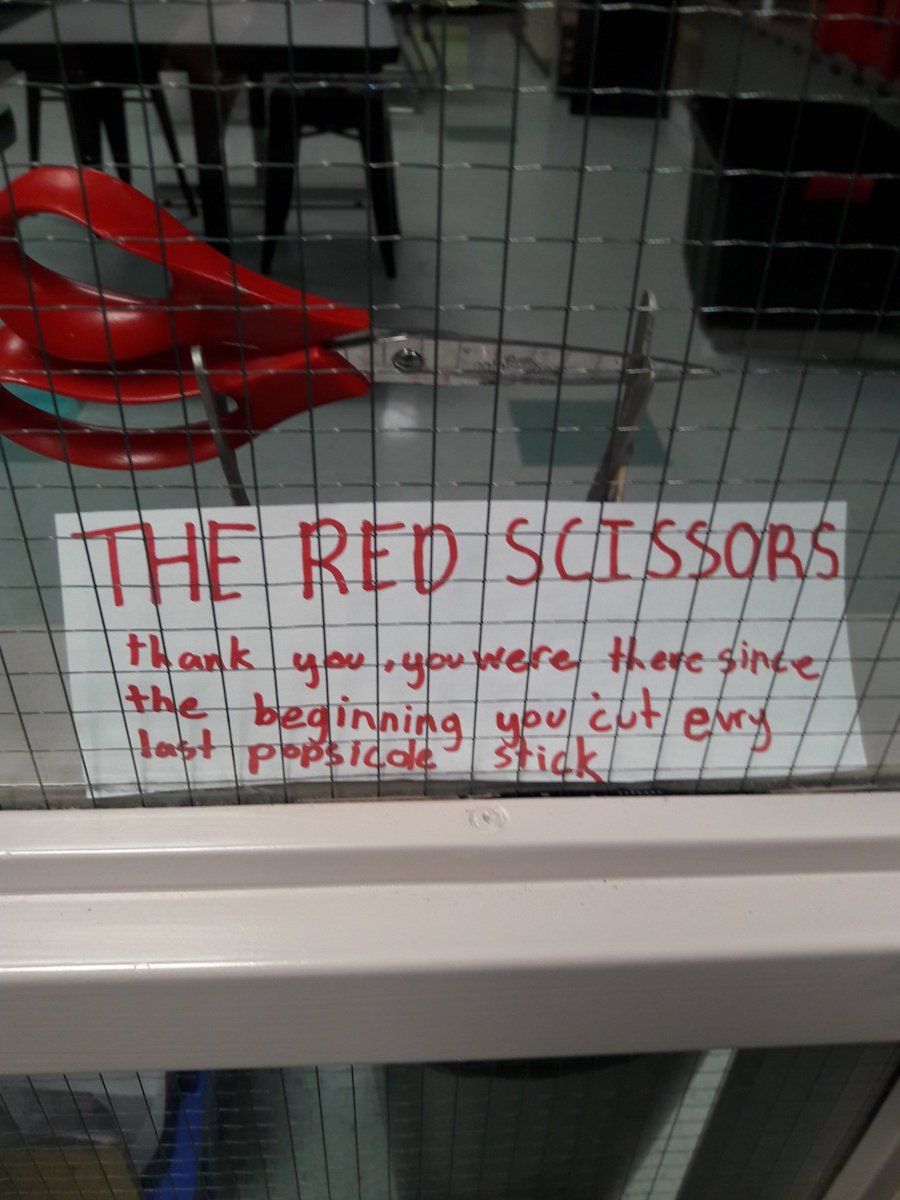 THE RED SCISSORS
thank you, you were there since
the beginning you cut evry
last popsicde stick